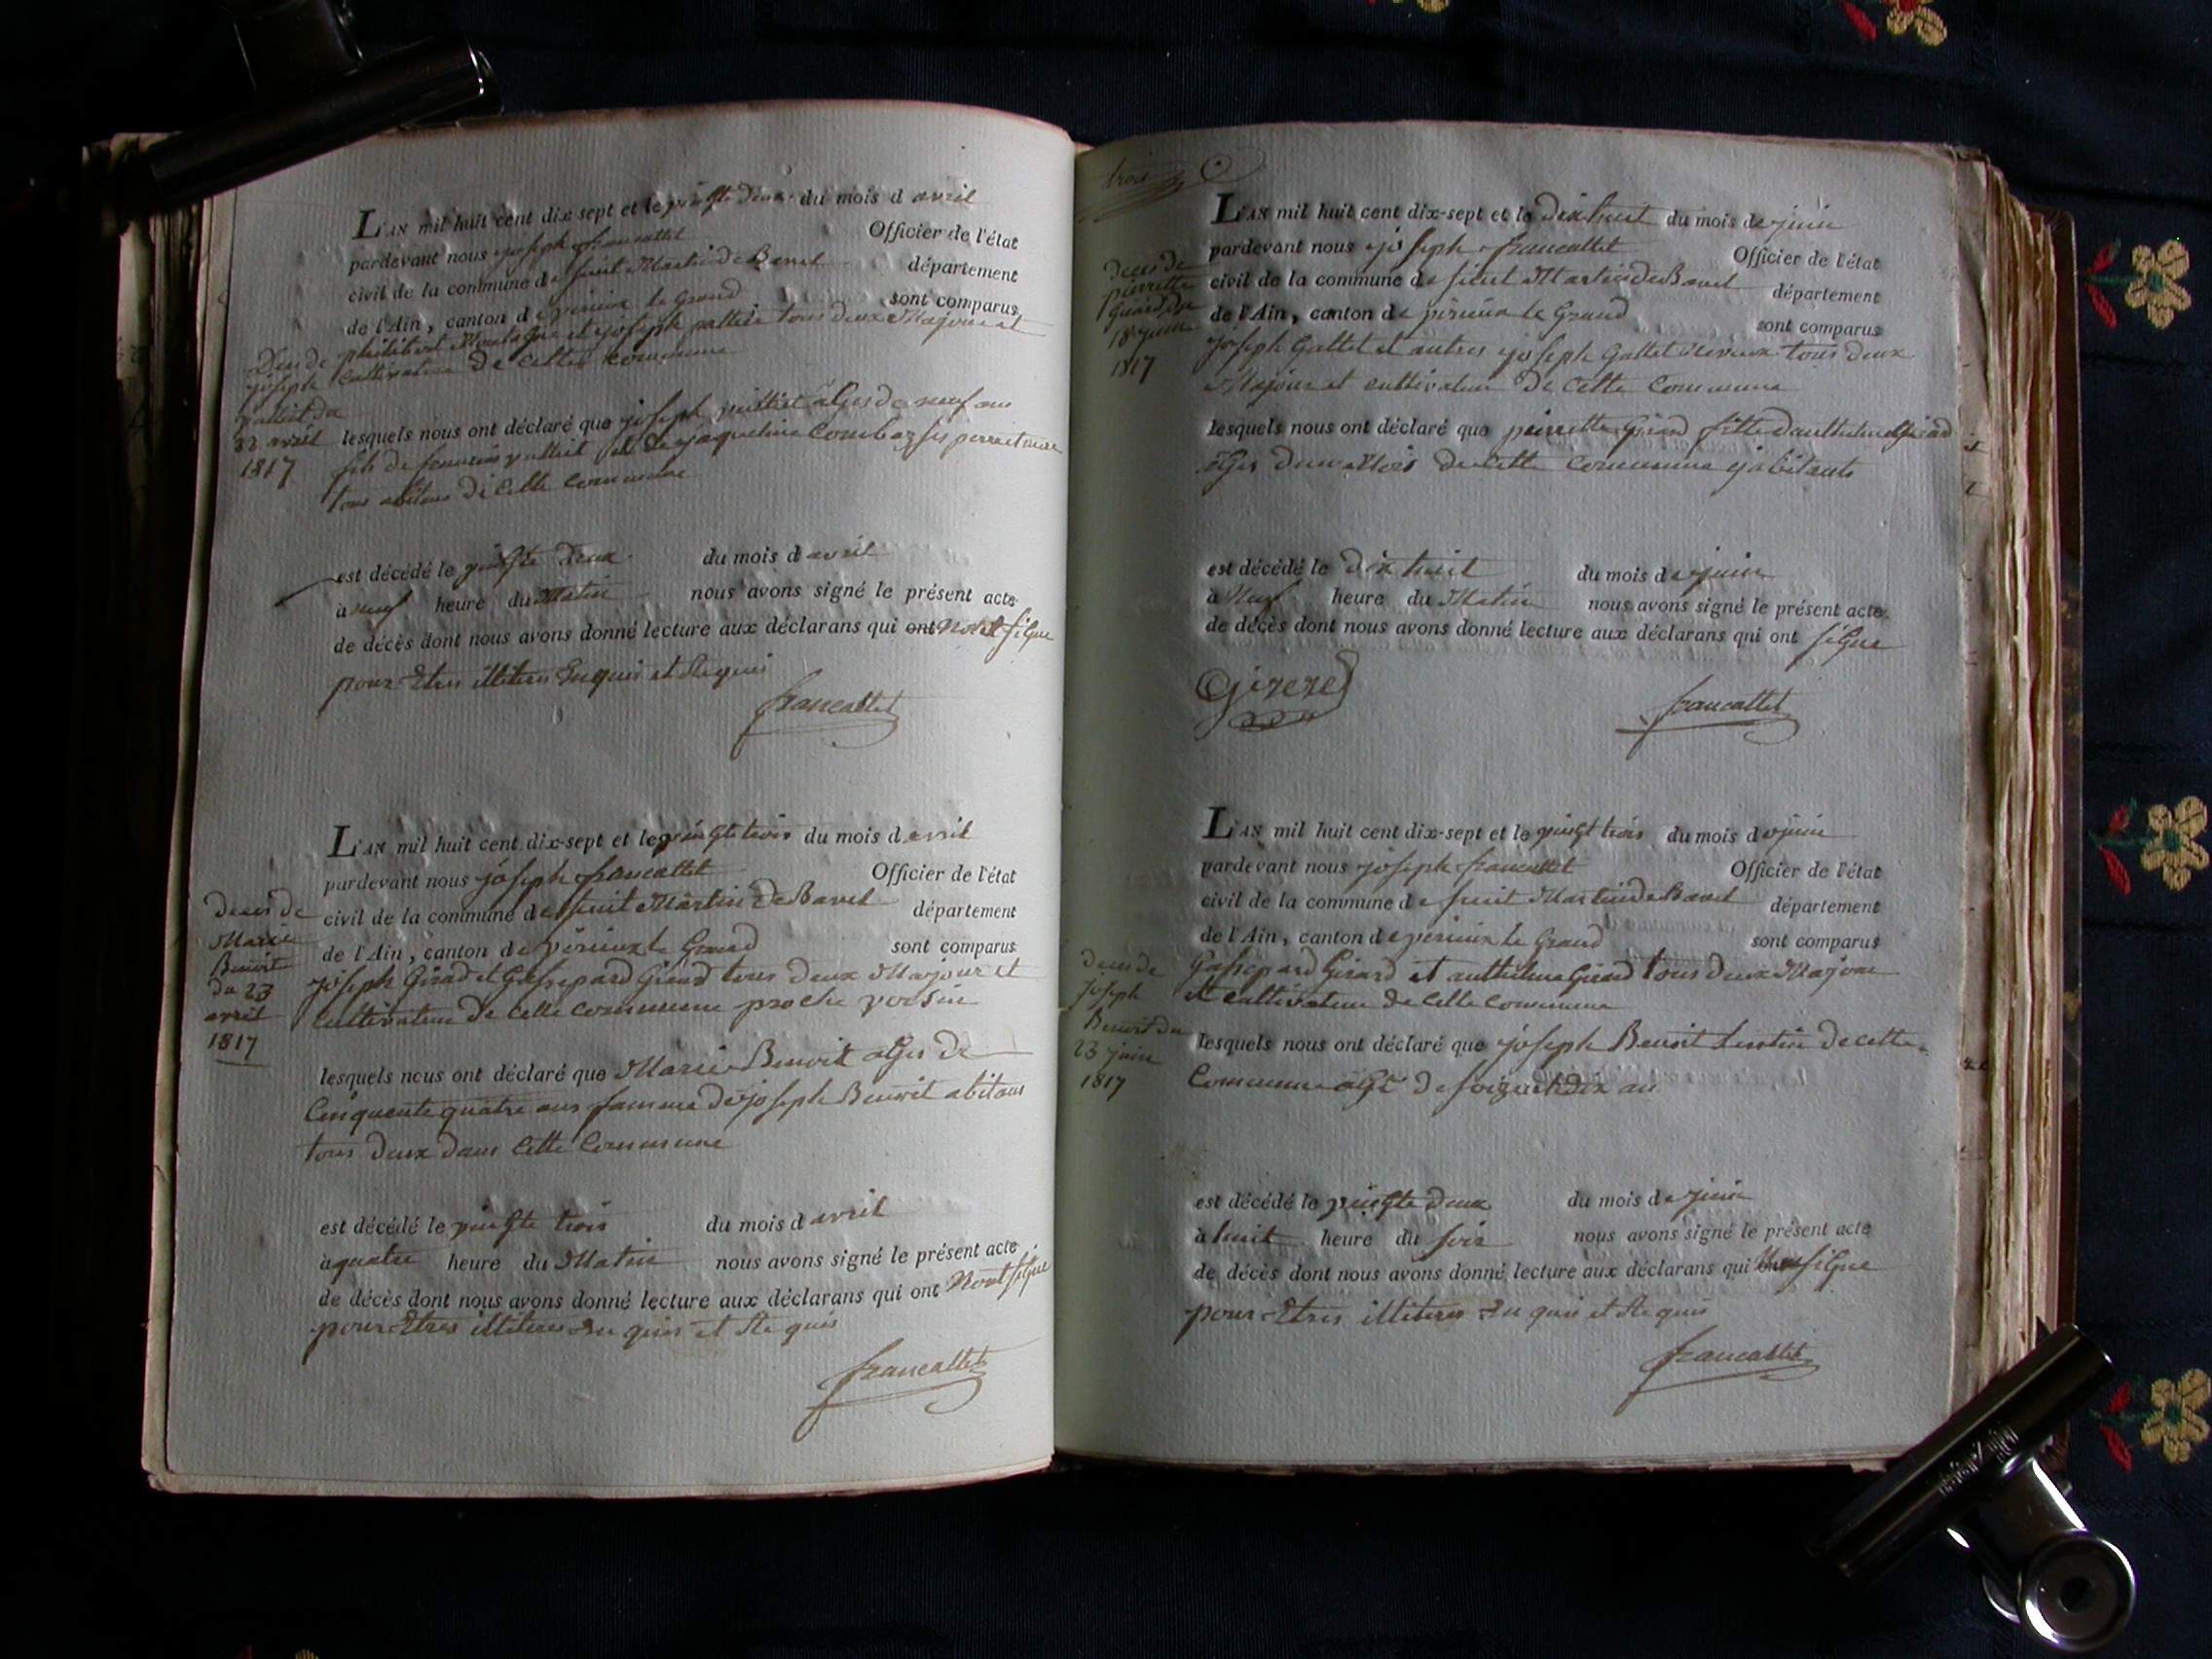 L'AN mil huit cent dix-sept et le vingte deux du mois d avril
pardevant nous joseph francallet Officier de l'état
civil de la commune de saint Martin de Bavel département
de l'Ain, canton de virieux le Grand sont comparus
philibert et joseph tous deux Majeur et
cultivateur de cette commune
Deces de
joseph
du
22 avril
1817
lesquels nous ont déclaré que joseph agés de neuf ans
fils de et de jaqueline Combaz ses perre et mere
tous abitans de cette commune
est décédé le vingte deux du mois d avril
à neuf heure du Matin nous avons signé le présent acte
de décès dont nous avons donné lecture aux déclarans qui ont Nont signe
pour Etres illiteres Enquis et Requis
francallet
L'AN mil huit cent dix-sept et le vingte trois du mois d avril
pardevant nous joseph francallet Officier de l'état
civil de la commune de saint Martin de Bavel département
de l'Ain, canton de virieux le Grand sont comparus
joseph Girad et Gaspard Girad tous deux Majour et
cultivateur de cette commune proche voisin
Deces de
Marie
Benoit
du 23
avril
1817
lesquels nous ont déclaré que Marie Benoit agés de
Cinquente quatre ans famme de joseph Benoit abitans
tous deux dans cette commune
est décédé le vingte trois du mois d avril
à quatre heure du Matin nous avons signé le présent acte
de décès dont nous avons donné lecture aux déclarans qui ont Nont signe
pour Etres illiteres En quis et Re quis
francallet
trois
L'AN mil huit cent dix-sept et le dix huit du mois de juin
pardevant nous joseph francallet Officier de l'état
civil de la commune de saint Martin de Bavel département
de l'Ain, canton de virieux le Grand sont comparus
joseph Gallet et autres joseph Gallet tous deux
Majour et cultivateur de cette commune
Deces de
pierrette
Girard du
18 juin
1817
lesquels nous ont déclaré que pierrette Girard fille danthelme Girad
agés dun Mois de cette commune
est décédé le dix huit du mois de juin
à Neuf heure du Matin nous avons signé le présent acte
de décès dont nous avons donné lecture aux déclarans qui ont signe
francallet
L'AN mil huit cent dix-sept et le vingt trois du mois de juin
pardevant nous joseph francallet Officier de l'état
civil de la commune de saint Martin de Bavel département
de l'Ain, canton de virieux le Grand sont comparus
Gaspard Girard et anthelme Girad tous deux Majour
et cultivateur de cette commune
Deces de
joseph
Benoit du
23 juin
1817
lesquels nous ont déclaré que joseph Benoit de cette
commune agé de soizantedix an
est décédé le vingte deux du mois de juin
à huit heure du soir nous avons signé le présent acte
de décès dont nous avons donné lecture aux déclarans qui signe
pour Etres illiteres En quis et Re quis
francallet